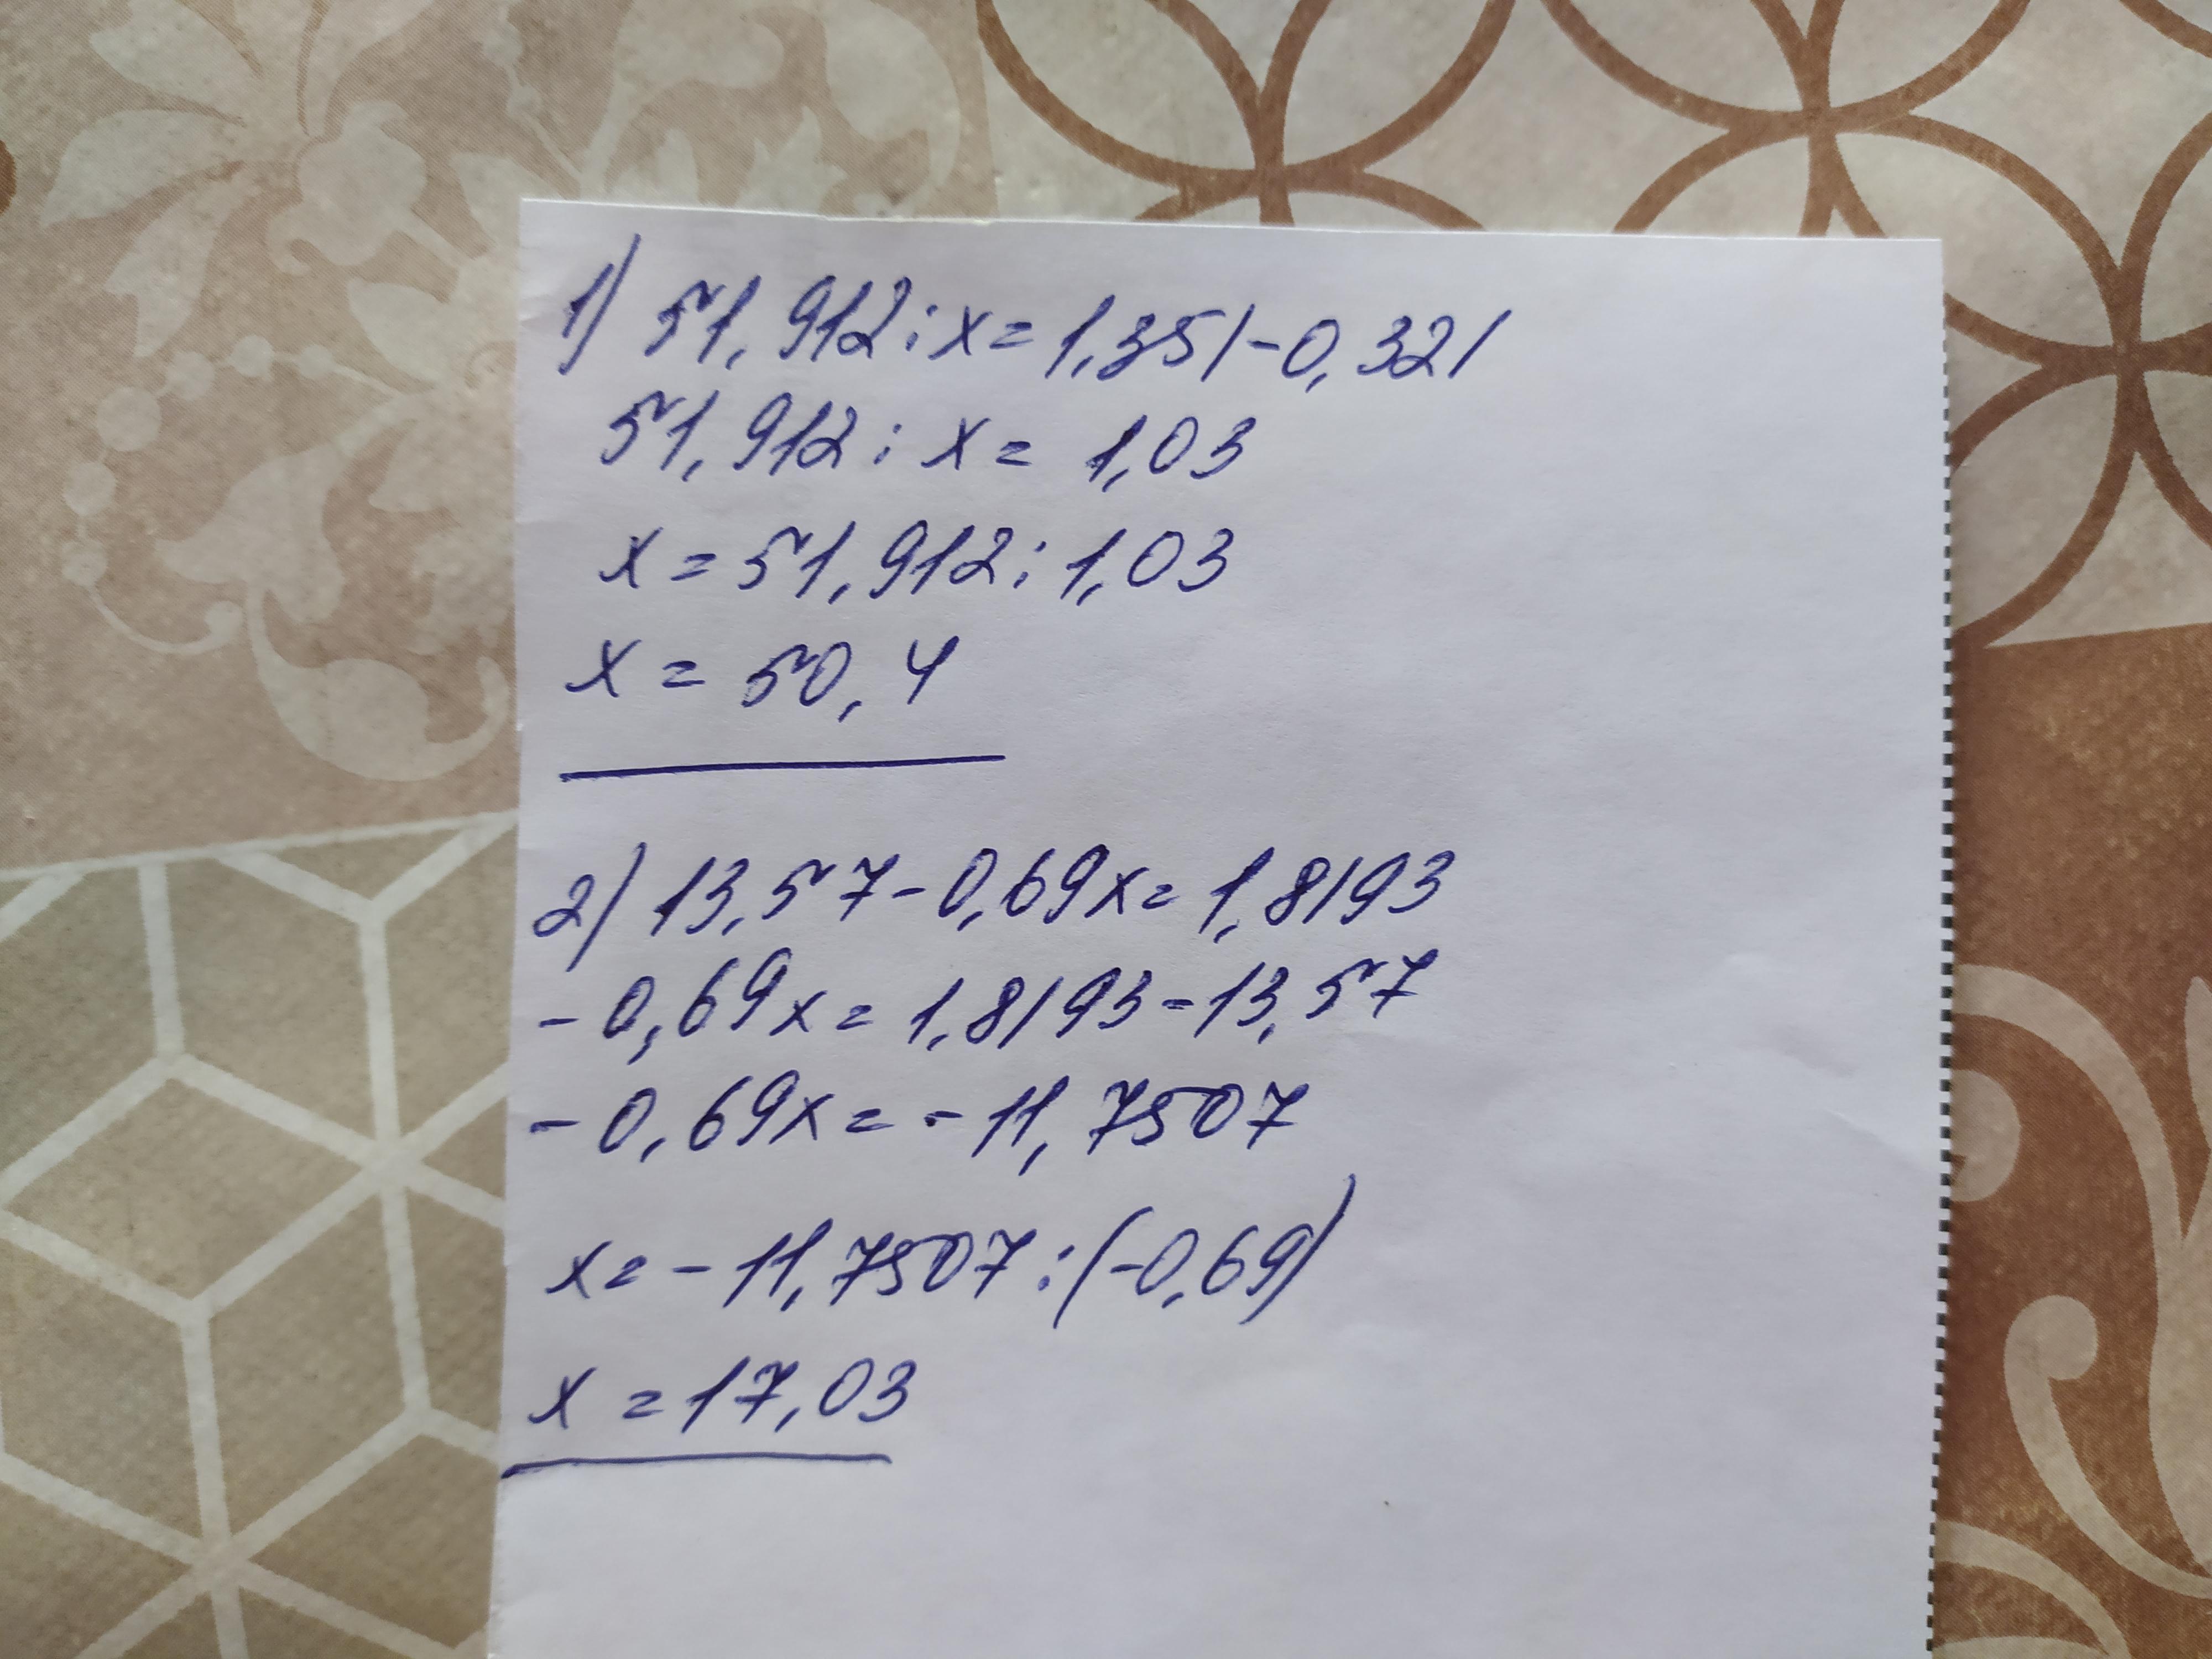 1) 51,912 : x = 1,351 - 0,321
51,912 : x = 1,03
x = 51,912 : 1,03
x = 50,4
2) 13,57 - 0,69x = 1,8193
- 0,69x = 1,8193 - 13,57
- 0,69x = - 11,7507
x = - 11,7507 : (-0,69)
x = 17,03